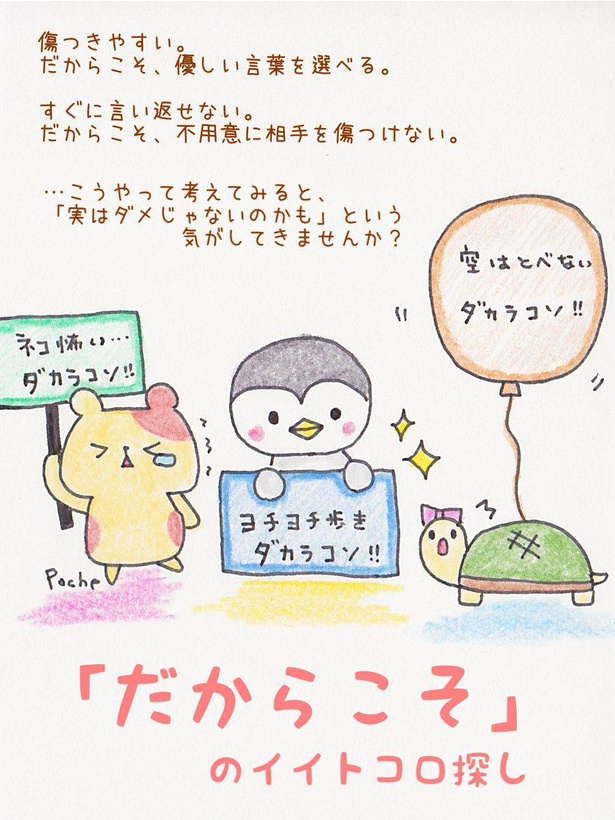 傷つきやすい。
だからこそ、優しい言葉を選べる。
すぐに言い返せない。
だからこそ、不用意に相手を傷つけない。
…こうやって考えてみると、
「実はダメじゃないのかも」という
気がしてきませんか？
空はとべない
ダカラコソ!!
ネコ怖い…
ダカラコソ!!
ヨチヨチ歩き
ダカラコソ!!
Poche
「だからこそ」
のイイトコロ探し